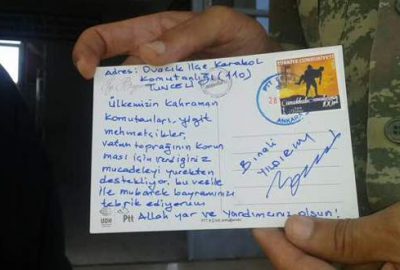 Adres: Ovacık İlçe Karakol
Komutanlığı (110)
TUNCELİ
Ülkemizin kahraman
komutanları, yiğit
mehmetçikler,
vatan toprağının korun
ması için verdiğiniz
mücadeleyi yürekten
destekliyor, bu vesile
ile mübarek bayramınızı
tebrik ediyorum
Allah yar ve yardımcınız olsun!
TÜRKİYE CUMHURİYETİ
PTT
Çanakkale
100
28
ANKARA
Binali
YILDIRIM
UDH
Ptt